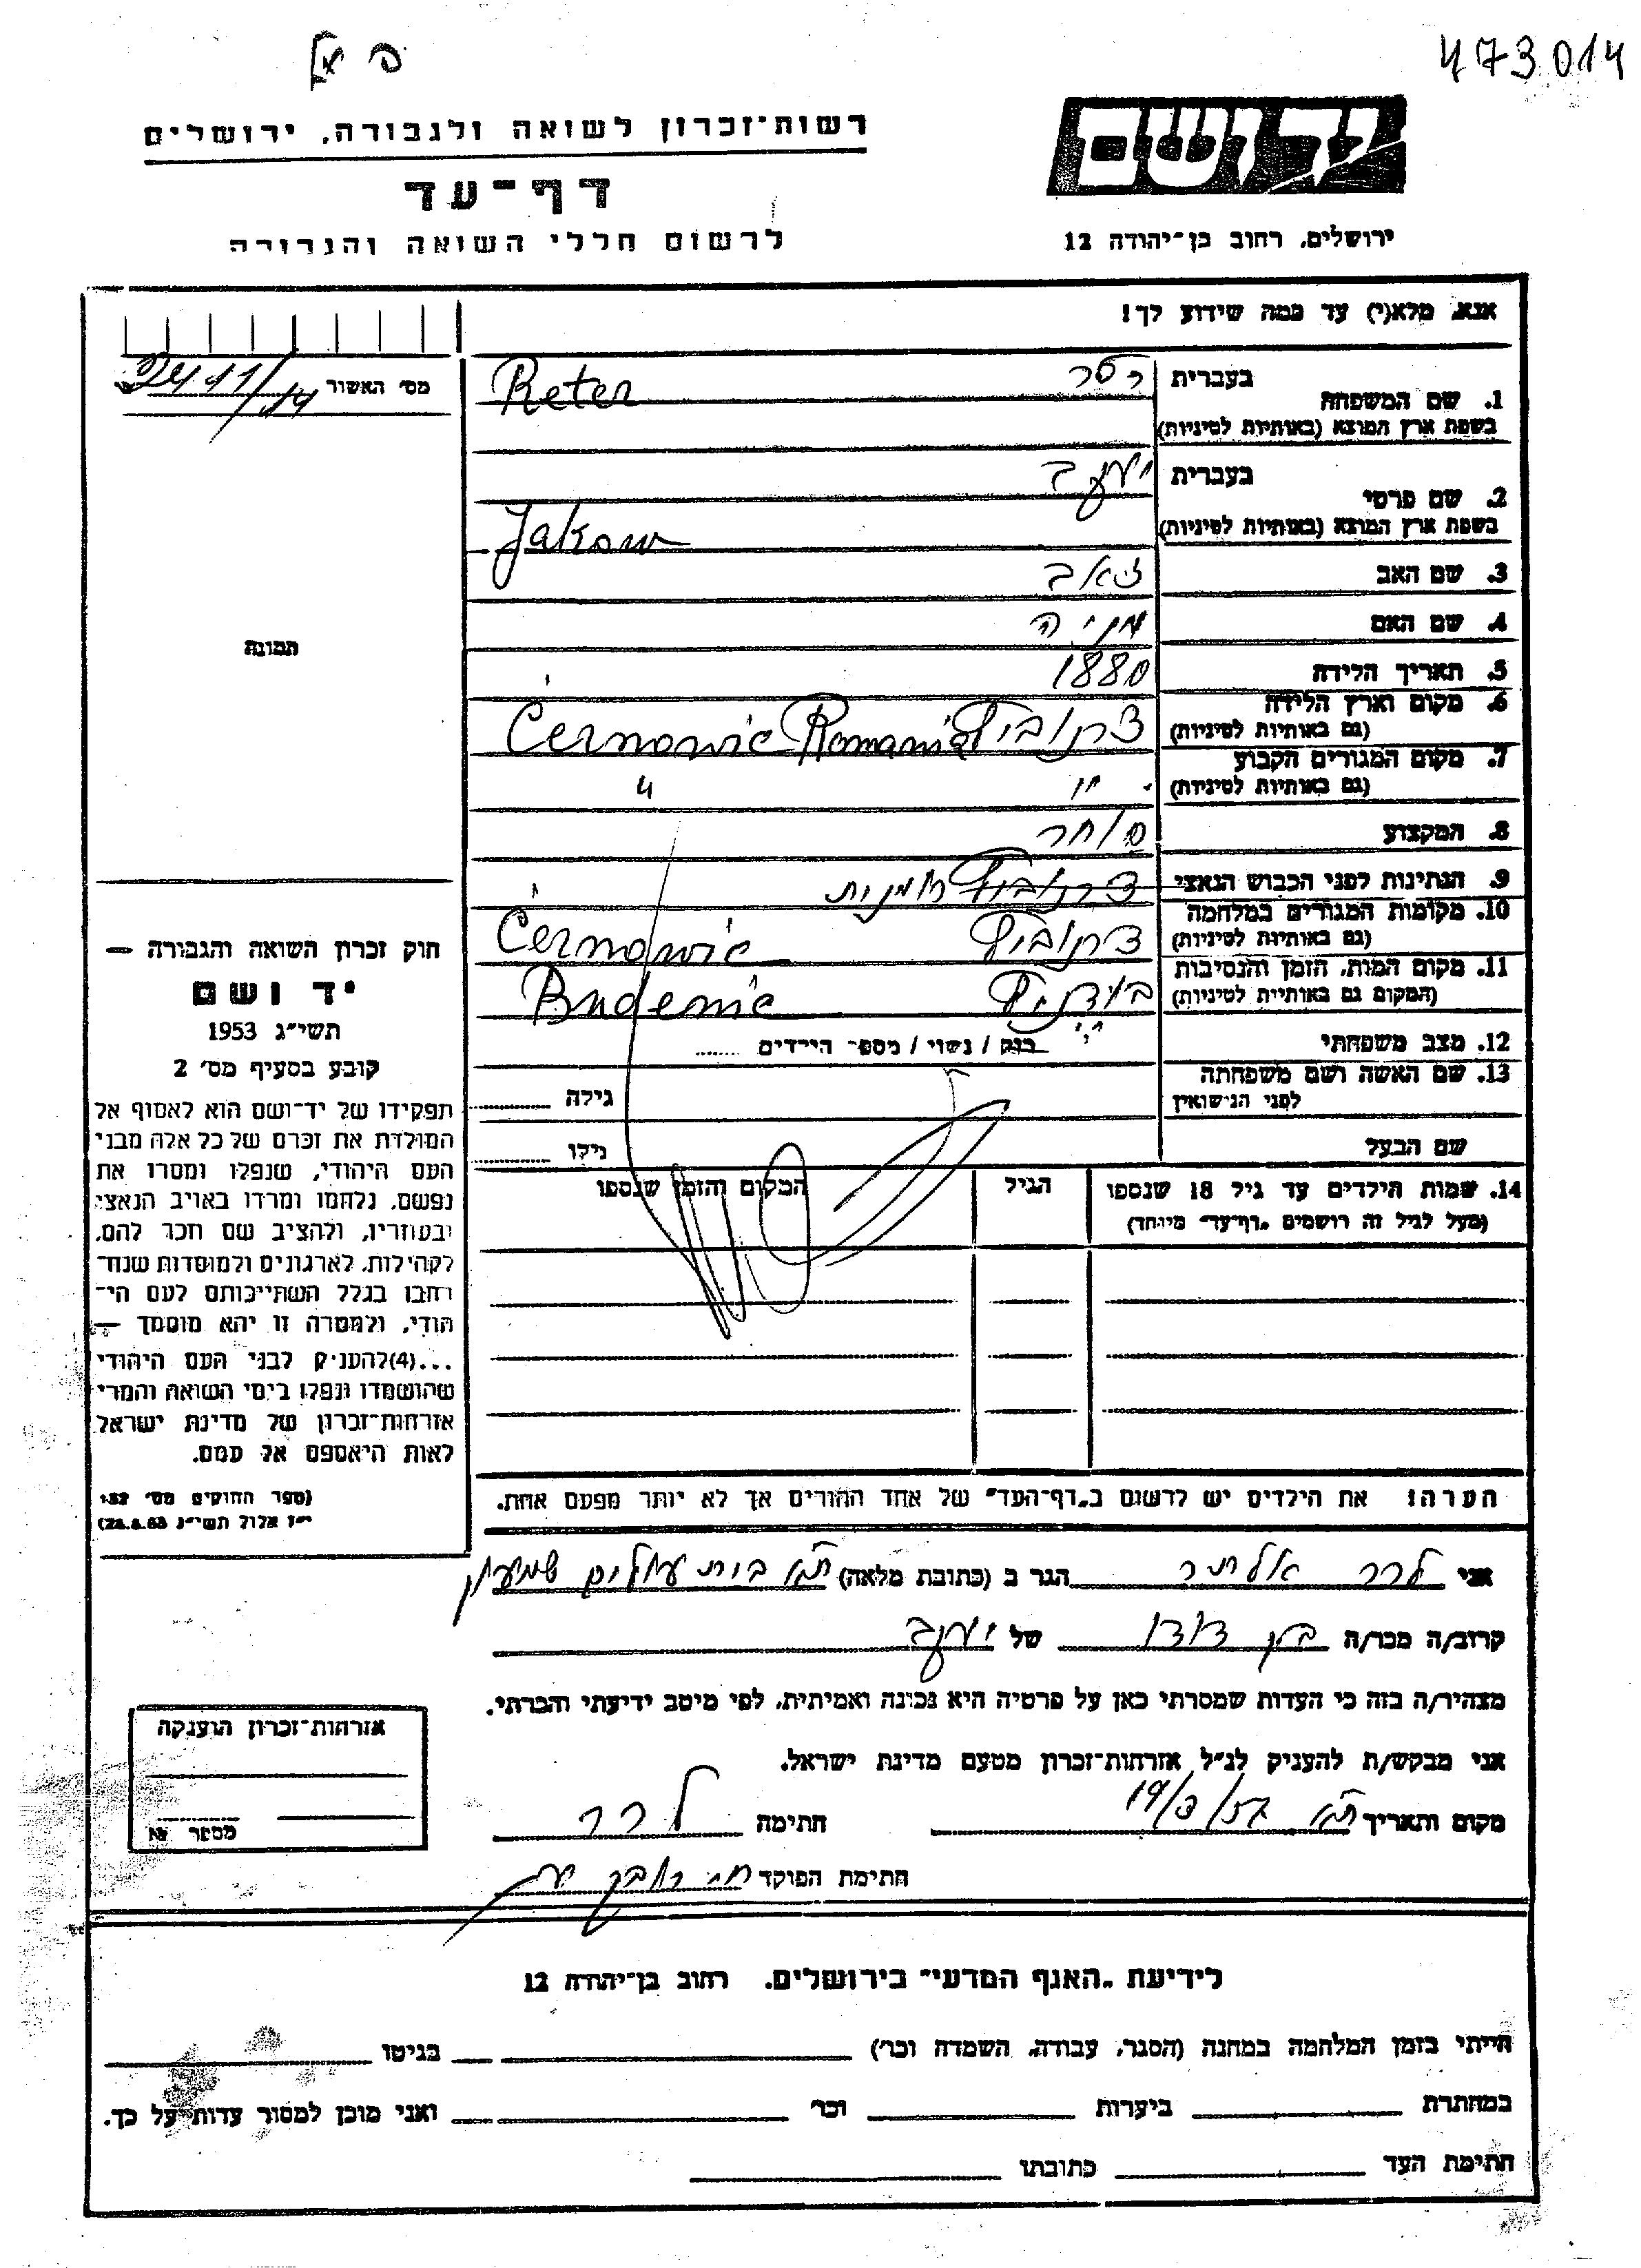 473014
רשות־זכרון לשואה ולגבורה, ירושלים
יד ושם
דף־עד
לרשום חללי השואה והגבורה
ירושלים, רחוב בן־יהודה 12
אנא, מלא(י) עד כמה שידוע לך!
מס׳ האשור
1. שם המשפחה בעברית רטר
בשפת ארץ המוצא (באותיות לטיניות) Reter
2. שם פרטי בעברית יעקב
בשפת ארץ המוצא (באותיות לטיניות) Jakow
3. שם האב זאב
4. שם האם מניה
5. תאריך הלידה 1880
6. מקום וארץ הלידה (גם באותיות לטיניות) צרנוביץ Romania Černowic
7. מקום המגורים הקבוע (גם באותיות לטיניות) " "
8. המקצוע סוחר
9. הנתינות לפני הכבוש הנאצי צרנוביץ רומנית
10. מקומות המגורים במלחמה (גם באותיות לטיניות) צרנוביץ Černowic
11. מקום המות, הזמן והנסיבות (המקום גם באותיית לטיניות) Budenic
12. מצב משפחתי רוק / נשוי / מספר הילדים
13. שם האשה ושם משפחתה לפני הנישואין גילה
שם הבעל גילו
14. שמות הילדים עד גיל 18 שנספו הגיל המקום והזמן שנספו
(מעל לגיל זה רושמים „דף־עד״ מיוחד)
תמונה
חוק זכרון השואה והגבורה —
יד ושם
תשי״ג 1953
קובע בסעיף מס׳ 2
תפקידו של יד־ושם הוא לאסוף אל
המולדת את זכרם של כל אלה מבני
העם היהודי, שנפלו ומסרו את
נפשם, נלחמו ומרדו באויב הנאצי
ובעוזריו, ולהציב שם וזכר להם,
לקהילות, לארגונים ולמוסדות שנח־
רחבו בגלל השתייכותם לעם הי־
הודי, ולמטרה זו יהא מוסמך —
...(4)להעניק לבני העם היהודי
שהושמדו ונפלו בימי השואה והמרי
אזרחות־זכרון של מדינת ישראל
לאות היאספם אל עמם.
(ספר החוקים מס׳ 132
י״ז אלול תשי״ג 28.8.53)
הערה! את הילדים יש לרשום ב„דף־העד״ של אחד ההורים אך לא יותר מפעם אחת.
אני לרר הגר ב (כתובת מלאה) ת״א בית עולים
קרוב/ה מכר/ה בן דודו של יעקב
מצהיר/ה בזה כי העדות שמסרתי כאן על פרטיה היא נכונה ואמיתית, לפי מיטב ידיעתי והכרתי.
אני מבקש/ת להעניק לנ״ל אזרחות־זכרון מטעם מדינת ישראל.
מקום ותאריך ת״א חתימה לרר
חתימת הפוקד
אזרחות־זכרון הוענקה
מספר №
לידיעת „האגף המדעי״ בירושלים, רחוב בן־יהודה 12
הייתי בזמן המלחמה במחנה (הסגר, עבודה, השמדה וכו׳) בגיטו
במחתרת ביערות וכו׳ ואני מוכן למסור עדות על כך.
חתימת העד כתובתו